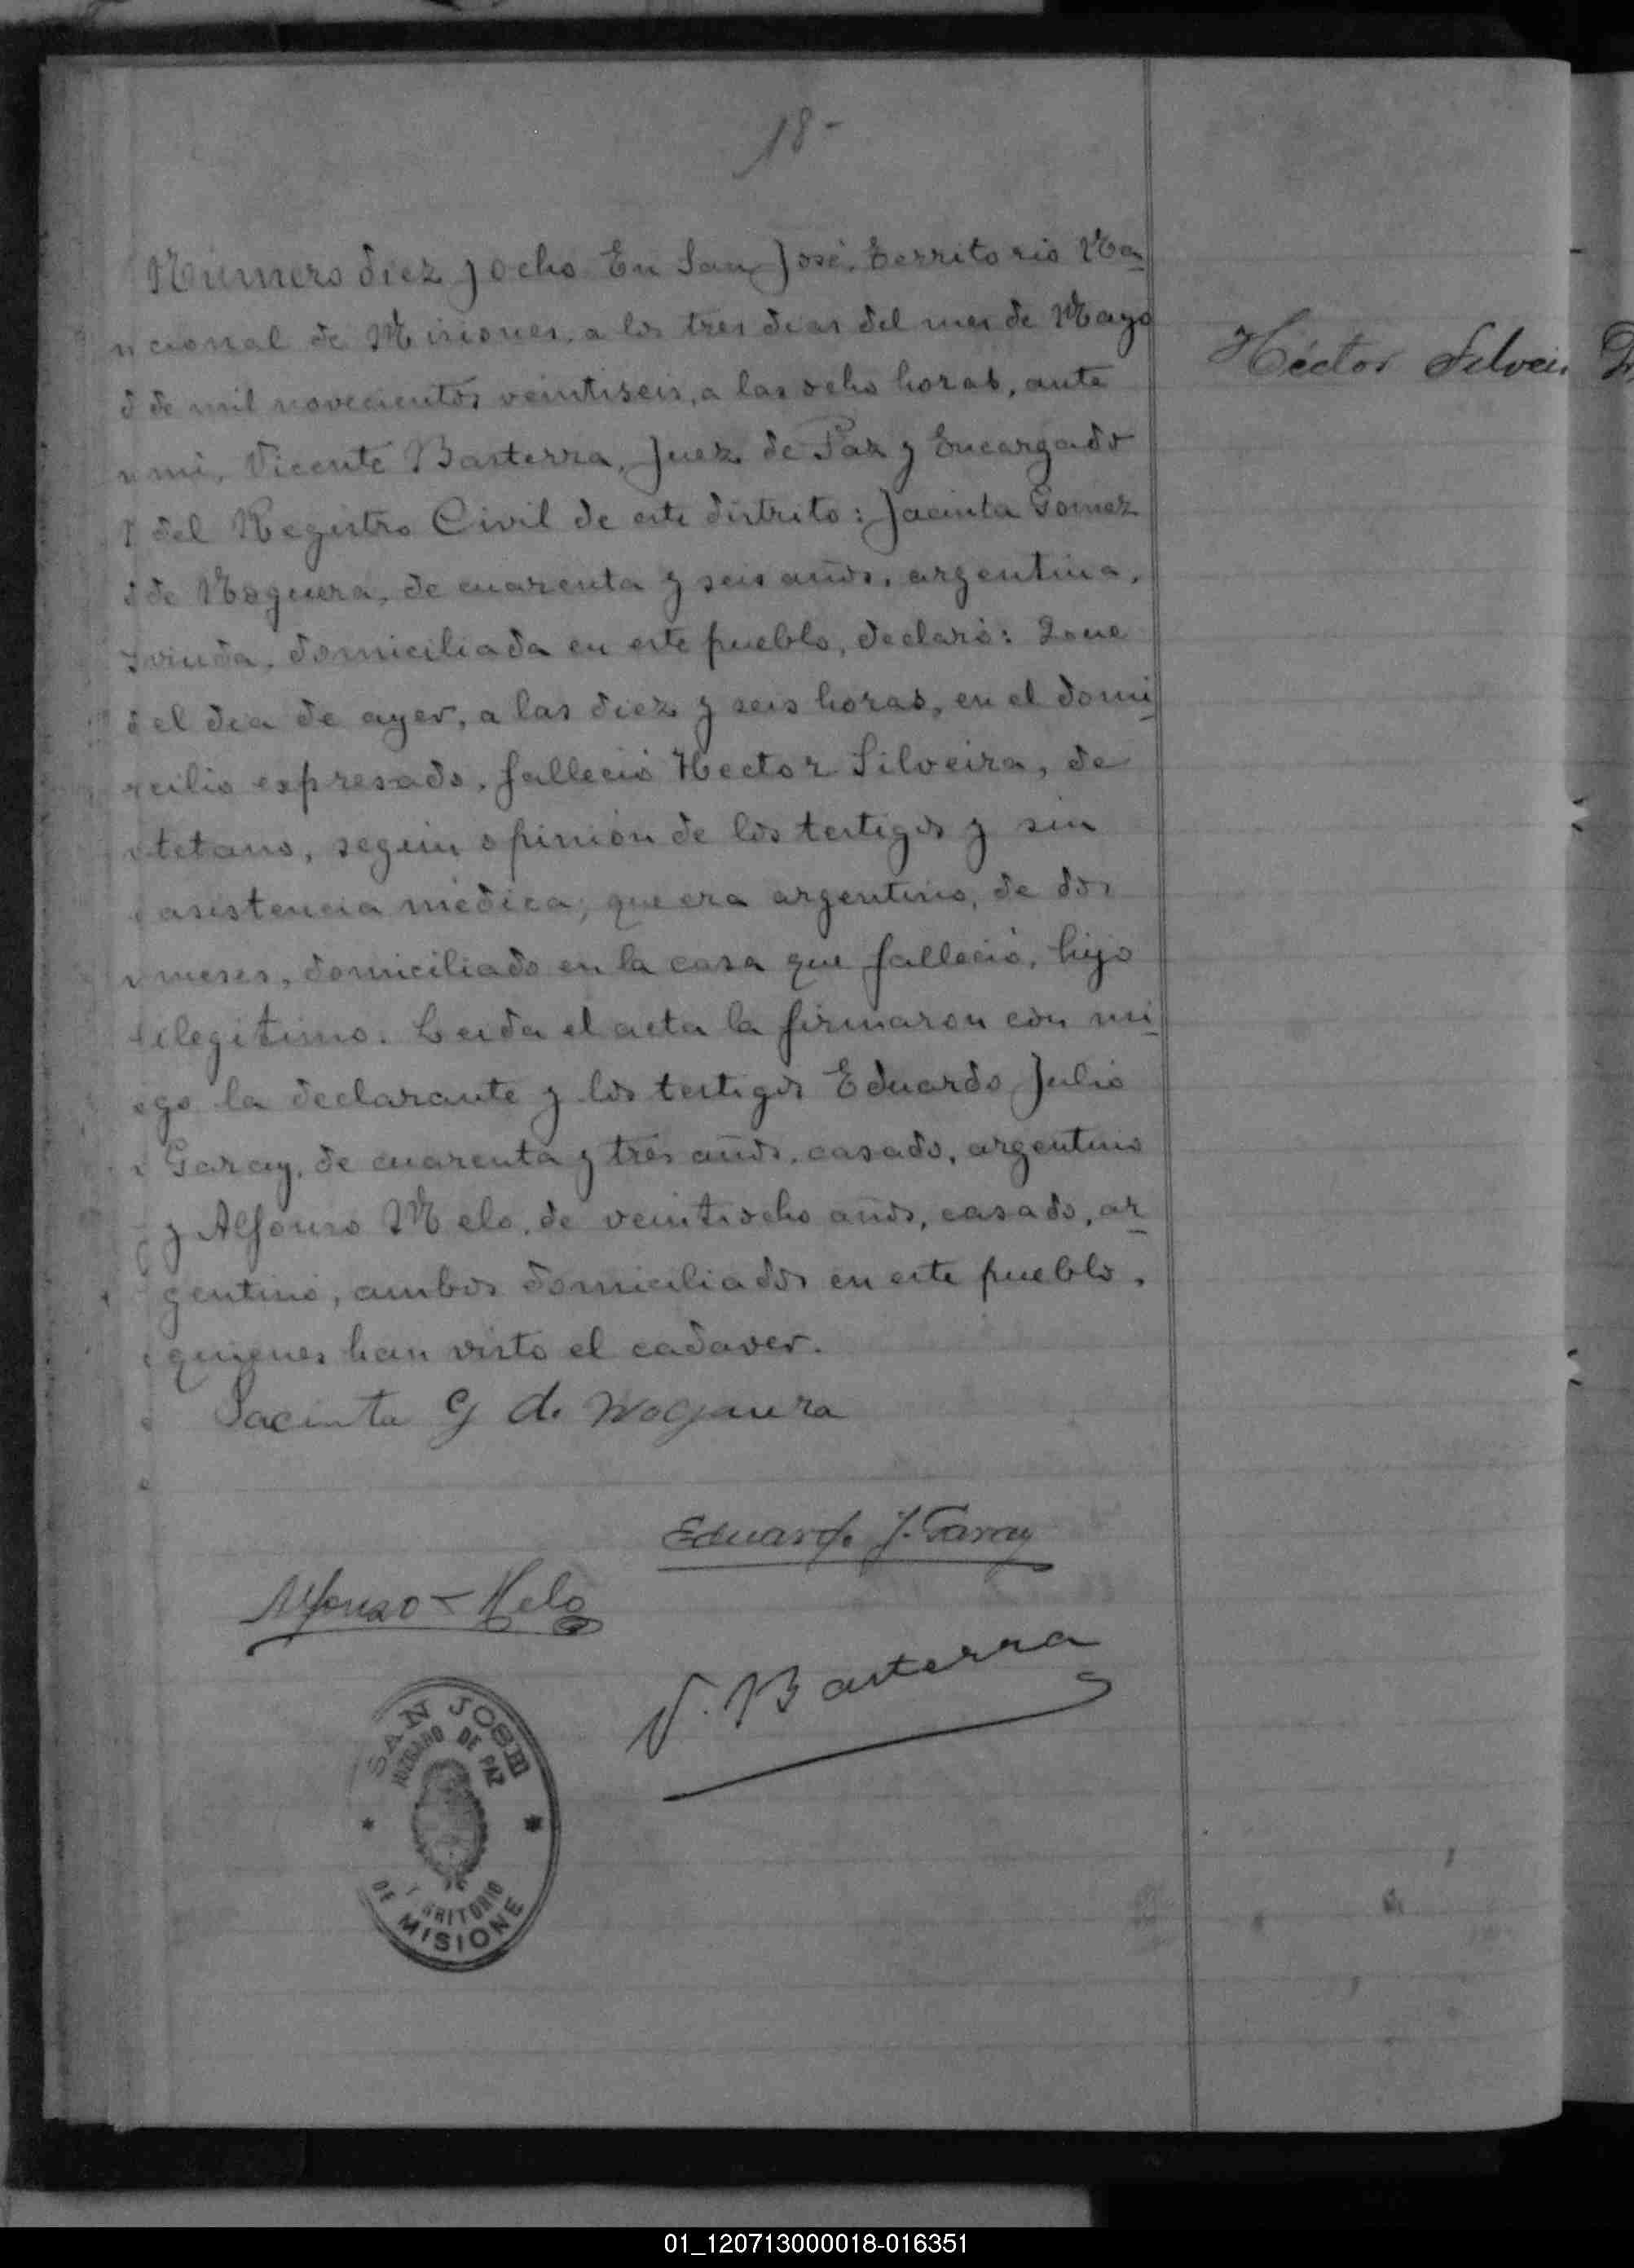 18-
Número diez y ocho. En San José, Territorio Na
cional de Misiones, a los tres dias del mes de Mayo
de mil novecientos veintiseis, a las ocho horas, ante
mi, Vicente Basterra, Juez de Paz y Encargado
del Registro Civil de este distrito: Jacinta Gomez
de Noguera, de cuarenta y seis años, argentina,
viuda, domiciliada en este pueblo, declaró: Que
el dia de ayer, a las diez y seis horas, en el domi
cilio expresado, falleció Hector Silveira, de
tetano, según opinión de los testigos y sin
asistencia médica; que era argentino, de dos
meses, domiciliado en la casa que falleció, hijo
ilegitimo. Leida el acta la firmaron con mi
go la declarante y los testigos Eduardo Julio
Garay, de cuarenta y tres años, casado, argentino
y Alfonso Melo, de veintiocho años, casado, ar
gentino, ambos domiciliados en este pueblo,
quienes han visto el cadaver.
Héctor Silveir
Jacinta G de Nogaura
Eduardo J. Garay
Alfonso - Melo
V. Basterra
SAN JOSE
JUZGADO DE PAZ
RITORIO
DE MISIONE
01_120713000018-016351